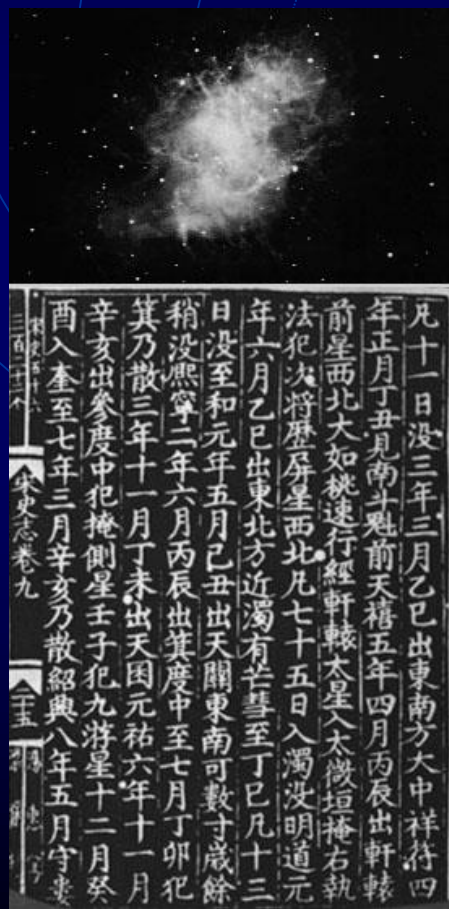 凡十一日没三年三月乙巳出東南方大中祥符四
年正月丁丑見南斗魁前天禧五年四月丙辰出軒轅
前星西北大如桃速行經軒轅太星入太微垣掩右執
法犯次将歷屏星西北凡七十五日入濁没明道元
年六月乙巳出東北方近濁有芒彗至丁巳凡十三
日没至和元年五月己丑出天關東南可數寸歳餘
稍没熙寧二年六月丙辰出箕度中至七月丁卯犯
箕乃散三年十一月丁未出天囷元祐六年十一月
辛亥出參度中犯掩側星壬子犯九斿星十二月癸
酉入奎至七年三月辛亥乃散紹興八年五月守婁
宋史志卷九
二十五